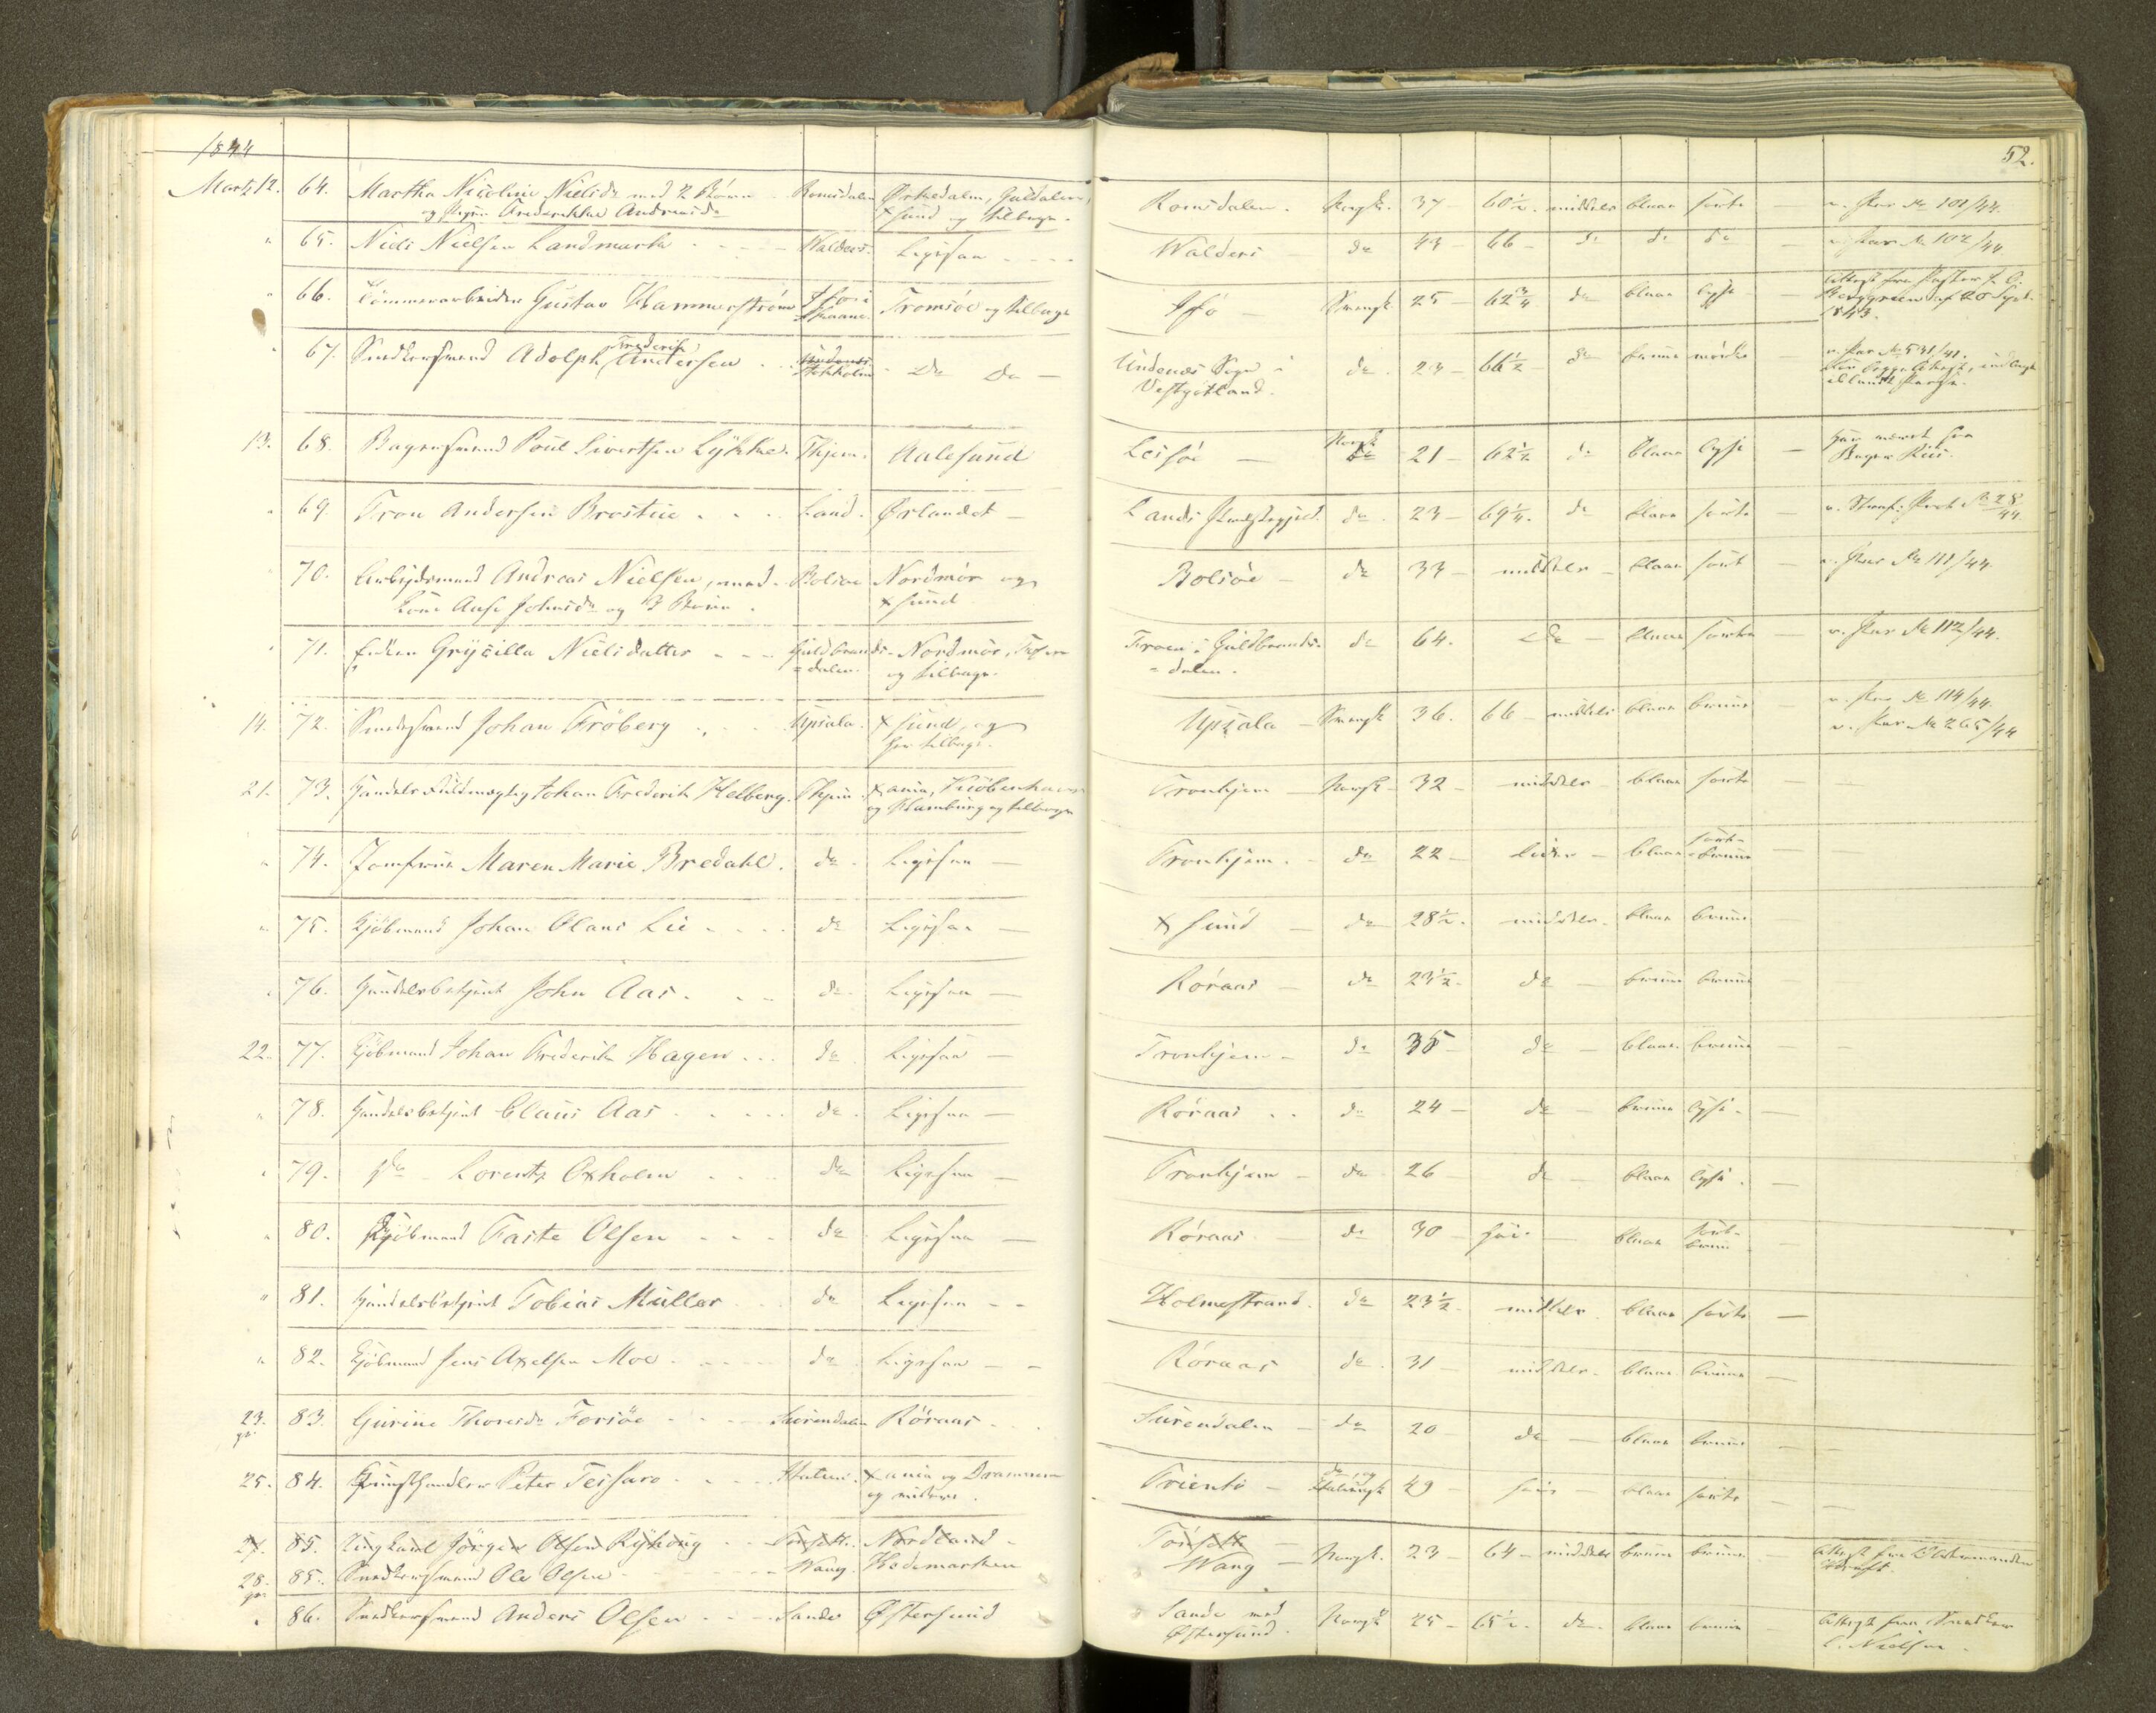 1844
52.
Martz 12. 64. Martha Nicoline Nielsdr med 2 Børn Romsdalen Ørkedalen, Guldalen,
og Pigen Frederikke Andreasdr Xsund og tilbage.
Romsdalen. Norsk. 37 60½. middels blaae sorte v. Pas No 101/44.
" 65. Nils Nielsen Landmark Walders. Ligesaa
Walders do 44 66 do do do v. Pas No 102/44
" 66. Tømmerarbeider Gustav Hammerström Ifö i Tromsöe og tilbage
Skaane.
Ifö Svensk 25 62¾ do blaae lyse Attest fra Pastor
Berggreen af 20 Sept.
1843.
" 67. Snedkersvend Adolph Frederik Andersen Undenæs Do Do
Stokholm
Undenæs Sogn i do 23 66½ do brune mörke v. Pas No 531/41.
Vestgötland.
13. 68. Bagersvend Poul Sivertsen Lykke. Thjem. Aalesund
Leisöe Norsk 21 62½ do blaae lyse har været hos
Bager
" 69 Tron Andersen Brostue Land. Ørlandet
Lands Præstegjeld. do 23 69¼. do blaae sorte v. Straf: Prot No 28/44
" 70. Arbeidsmand Andreas Nielsen, med Bolsøe Nordmør og
Kone Anse Johnsdr og 3 Børn. Xsund
Bolsöe do 33 middels blaae sort v. Pas No 111/44.
" 71. Enken Grycilla Nielsdatter Guldbrands- Nordmør,
=dalen. og tilbage.
Froen i Guldbrands- do 64. do blaae sorte v. Pas No 112/44.
=dalen.
14. 72. Smedesvend Johan Fröberg Upsala. Xsund og
her tilbage.
Upsala Svensk 36. 66 middels blaae brune v. Pas No 114/44.
v. Pas No 265/44
21. 73. Handels Fuldmægtig Johan Frederik Helberg. Thjem. Xania, Kiöbenhavn
og Hamburg og tilbage
Tronhjem Norsk 32 middels blaae sorte
" 74. Jomfrue Maren Marie Bredahl. do Ligesaa
Tronhjem. do 22 liden blaae sort-
brune
" 75. Kjöbmand Johan Olaus Lie do Ligesaa
Xsund do 28½. middels blaae brune
" 76. Handelsbetjent John Aas. do Ligesaa
Röraas do 23½. do brune brune
22. 77. Kjöbmand Johan Frederik Hagen do Ligesaa
Tronhjem do 35 do blaae brune
" 78. Handelsbetjent Claus Aas do Ligesaa
Röraas do 24 do brune lyse
" 79. do Lorentz Oxholm do Ligesaa
Tronhjem do 26 do blaae lyse
" 80. Kjöbmand Faste Olsen do Ligesaa
Röraas do 30 høi blaae sort-
brune
" 81. Handelsbetjent Tobias Müller do Ligesaa
Holmestrand. do 23½ middels blaae sorte
" 82. Kjöbmand Jens Axelsen Moe do Ligesaa
Röraas do. 31 middels blaae brune
23. 83. Gurine Thoresdr Forsöe Surendalen Röraas
Surendalen do 20 do blaae brune
25. 84. Kunsthandler Peter Tessaro Italien. Xania og Drammen
og videre.
Triento do og Italiensk 49 høi blaae sorte
27. 85. Ungkarl Jörgen Olsen Ryhaug Tønsett. Nordland
Tönsett
28. 85. Snedkersvend Ole Olsen Wang. Hedemarken
Wang Norsk. 23 64 middels brune brune Attest fra Oldermanden
" 86. Snedkersvend Anders Olsen Sande Østersund
Sande ved Norsk 25 65½. do. blaae brune Attest fra Snedker
Østersund. C. Nielsen.